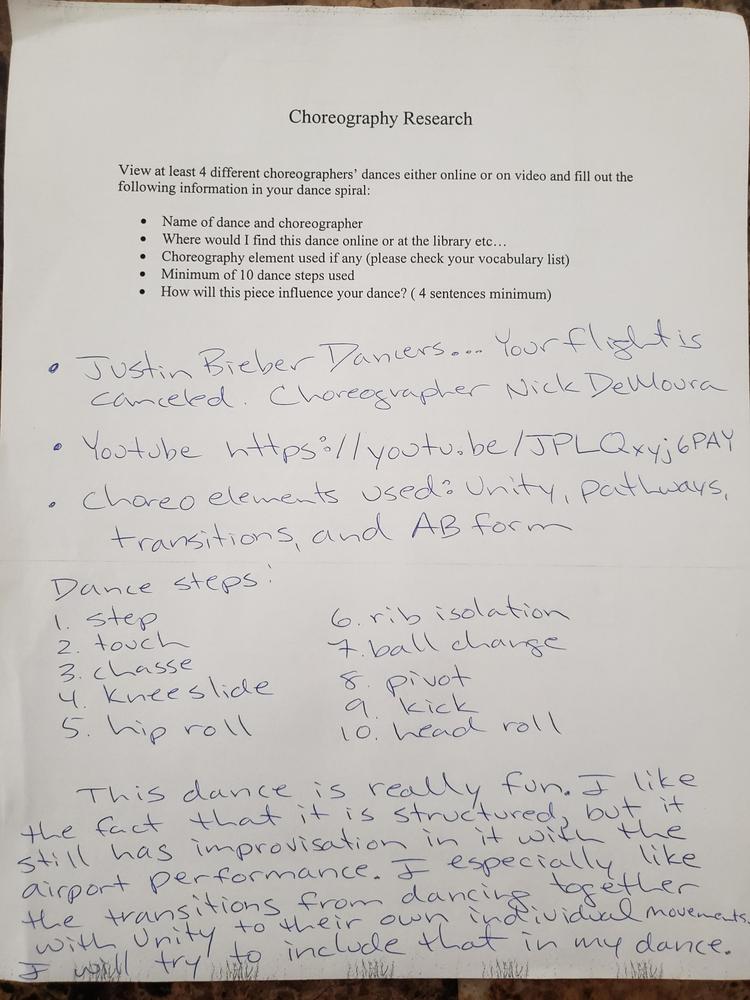 Choreography Research
View at least 4 different choreographers' dances either online or on video and fill out the
following information in your dance spiral:
• Name of dance and choreographer
• Where would I find this dance online or at the library etc…
• Choreography element used if any (please check your vocabulary list)
• Minimum of 10 dance steps used
• How will this piece influence your dance? ( 4 sentences minimum)
• Justin Bieber Dancers.... Your flight is
canceled. Choreographer Nick DeMoura
• Youtube https://youtu.be/JPLQxyj6PAY
• Choreo elements used: Unity, pathways,
transitions, and AB form
Dance steps:
1. step
2. touch
3. chasse
4. knee slide
5. hip roll
6. rib isolation
7. ball change
8. pivot
9. kick
10. head roll
This dance is really fun. I like
the fact that it is structured, but it
still has improvisation in it with the
airport performance. I especially like
the transitions from dancing together
with Unity to their own individual movements.
I will try to include that in my dance.